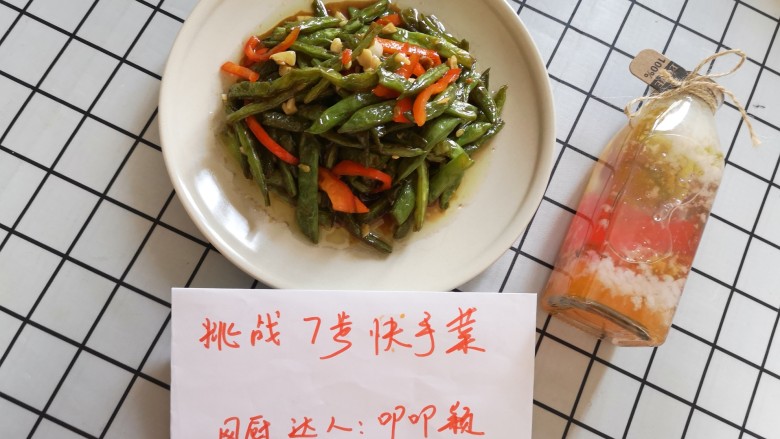 挑战7号快手菜
网厨达人：叩叩颖
100%